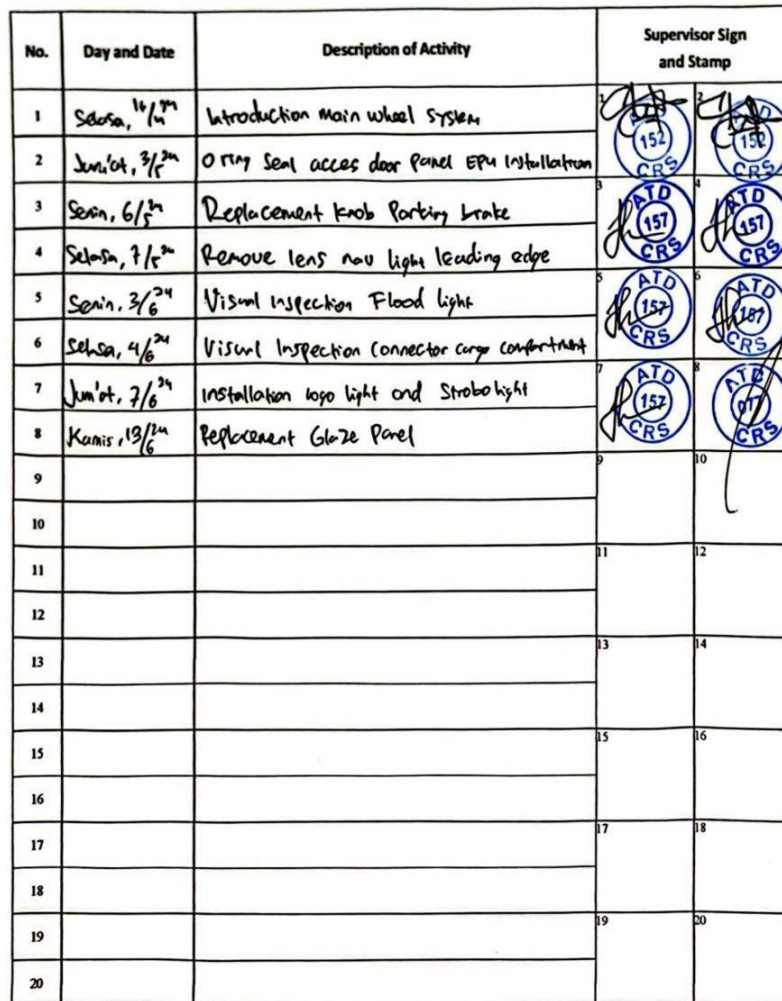 No. Day and Date Description of Activity Supervisor Sign and Stamp
1 Selasa, 16/4 24 Introduction main wheel system 1 ATD 152 CRS 2 ATD 152 CRS
2 Jum'at, 3/5 24 O ring Seal acces door Panel EPU Installation
3 Senin, 6/5 24 Replacement knob Parking brake 3 ATD 157 CRS 4 ATD 157 CRS
4 Selasa, 7/5 24 Remove lens nav light leading edge
5 Senin, 3/6 24 Visual Inspection Flood light 5 ATD 157 CRS 6 ATD 157 CRS
6 Selasa, 4/6 24 Visual Inspection Connector cargo compartment
7 Jum'at, 7/6 24 Installation logo light and Strobo light 7 ATD 157 CRS 8 ATD CRS
8 Kamis, 13/6 24 Replacement Glaze Panel
9 9 10
10
11 11 12
12
13 13 14
14
15 15 16
16
17 17 18
18
19 19 20
20